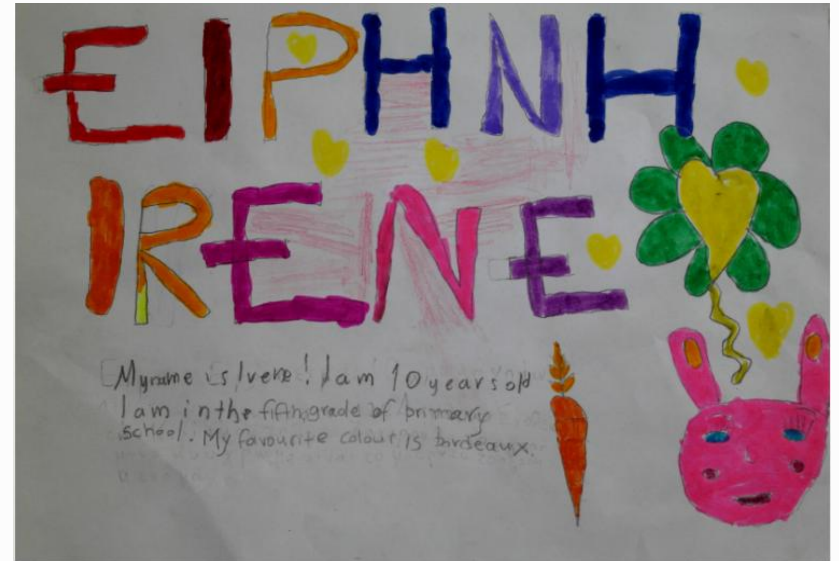 ΕΙΡΗΝΗ
IRENE
My name is Irene! I am 10 years old
I am in the fifth grade of primary
school. My favourite colour is bordeaux.